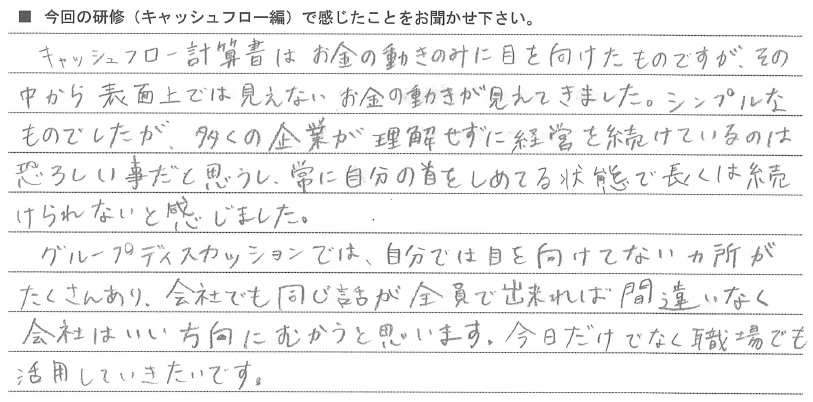 ■ 今回の研修（キャッシュフロー編）で感じたことをお聞かせ下さい。
キャッシュフロー計算書はお金の動きのみに目を向けたものですが、その
中から表面上では見えないお金の動きが見えてきました。シンプルな
ものでしたが、多くの企業が理解せずに経営を続けているのは
恐ろしい事だと思うし、常に自分の首をしめてる状態で長くは続
けられないと感じました。
グループディスカッションでは、自分では目を向けてないカ所が
たくさんあり、会社でも同じ話が全員で出来れば間違いなく
会社はいい方向にむかうと思います。今日だけでなく職場でも
活用していきたいです。